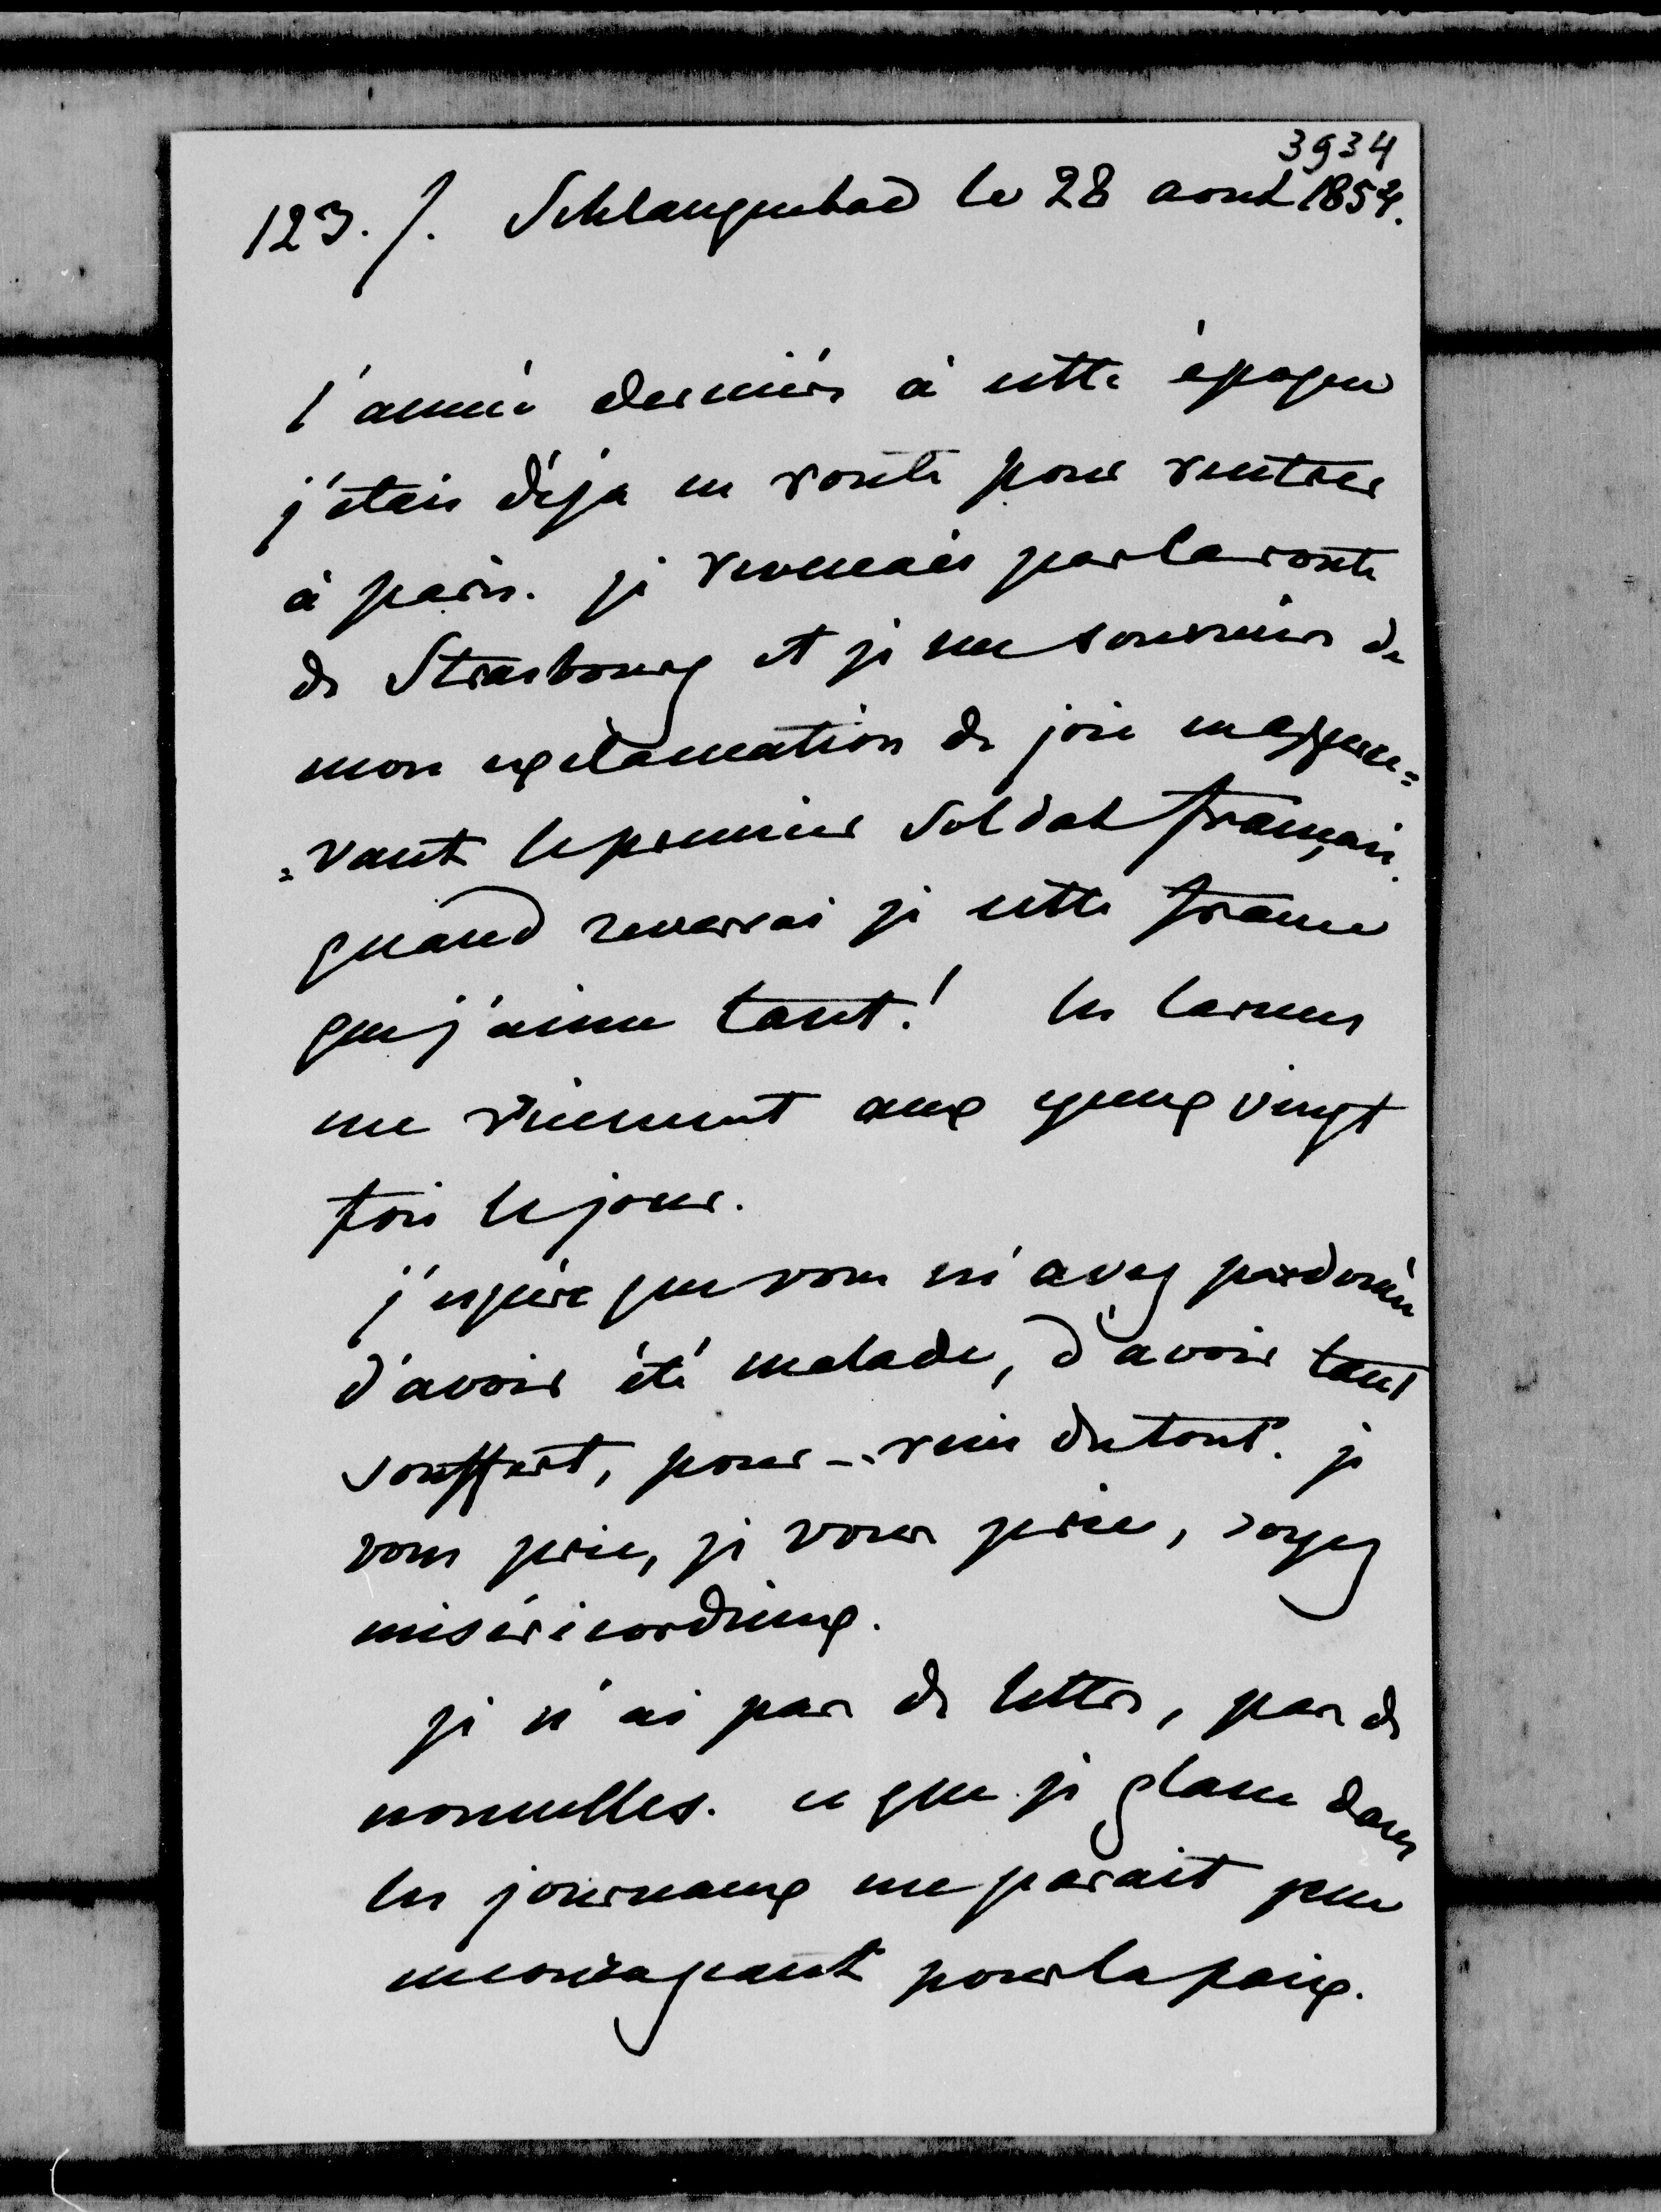 3934
123./. Schlangenbad le 28 aout 1854.
l'année dernière à cette époque
j'étais déja en route pour rentrer
à paris. je revenais par la route
de Strasbourg et je me souviens de
mon exclamation de joie en apperce=
=vant le premier Soldat français.
quand reverrai je cette france
que j'aime tant! les larmes
me viennent aux yeux vingt
fois le jour.
j'espère que vous m'avez pardonnée
d'avoir été malade, d'avoir tant
souffert, pour - rien du tout. je
vous prie, je vous prie, soyez
miséricordieux.
je n'ai pas de lettres, pas de
nouvelles. ce que je glane dans
les journaux me parait peu
encourageant pour la paix.